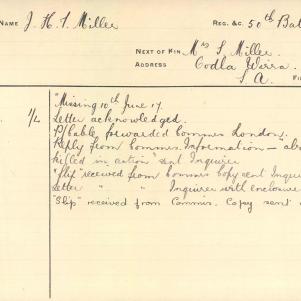 NAME J. H. S. Miller REG. &C. 50th Bat
NEXT OF KIN Mrs S Miller.
ADDRESS Codla Wirra.
S. A. FI
Missing 10th June 17.
Letter acknowledged.
P/Cable forwarded Commis London.
Reply from Commis. Information – abo
killed in action" sent Inquirer
"Slip" received from Commis copy sent Inqui
Letter " " Inquirer with enclosure
"Slip" received from Commis. Copy sent